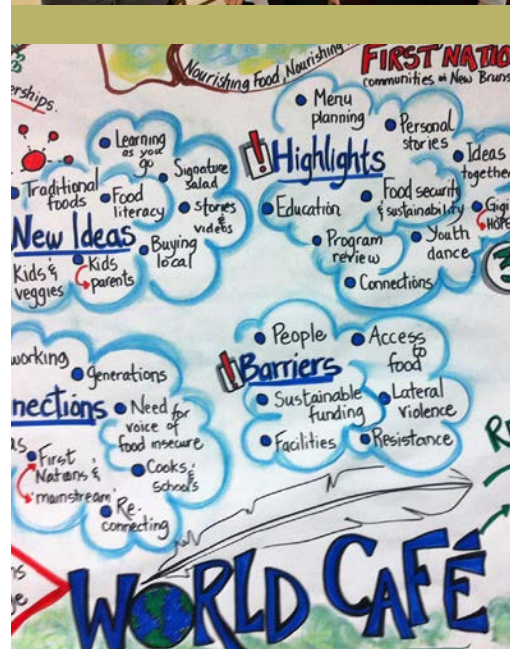 Nourishing Food, Nourishing
FIRST NATIO
communities in New Bruns
erships.
Learning
as you
go
Signature
salad
Traditional
foods
Food
literacy
Stories
&
videos
New Ideas
Buying
local
Kids &
veggies
Kids
parents
! Highlights
Menu
planning
Personal
stories
Ideas
together
Education
Food security
& sustainability
Gigi
HOPE
Program
review
Youth
dance
Connections
3
working
generations
nections
Need for
voice of
food insecure
First
Nations &
mainstream
Cooks &
schools
Re-
connecting
! Barriers
People
Access
to
food
Sustainable
funding
Lateral
violence
Facilities
Resistance
WORLD CAFÉ